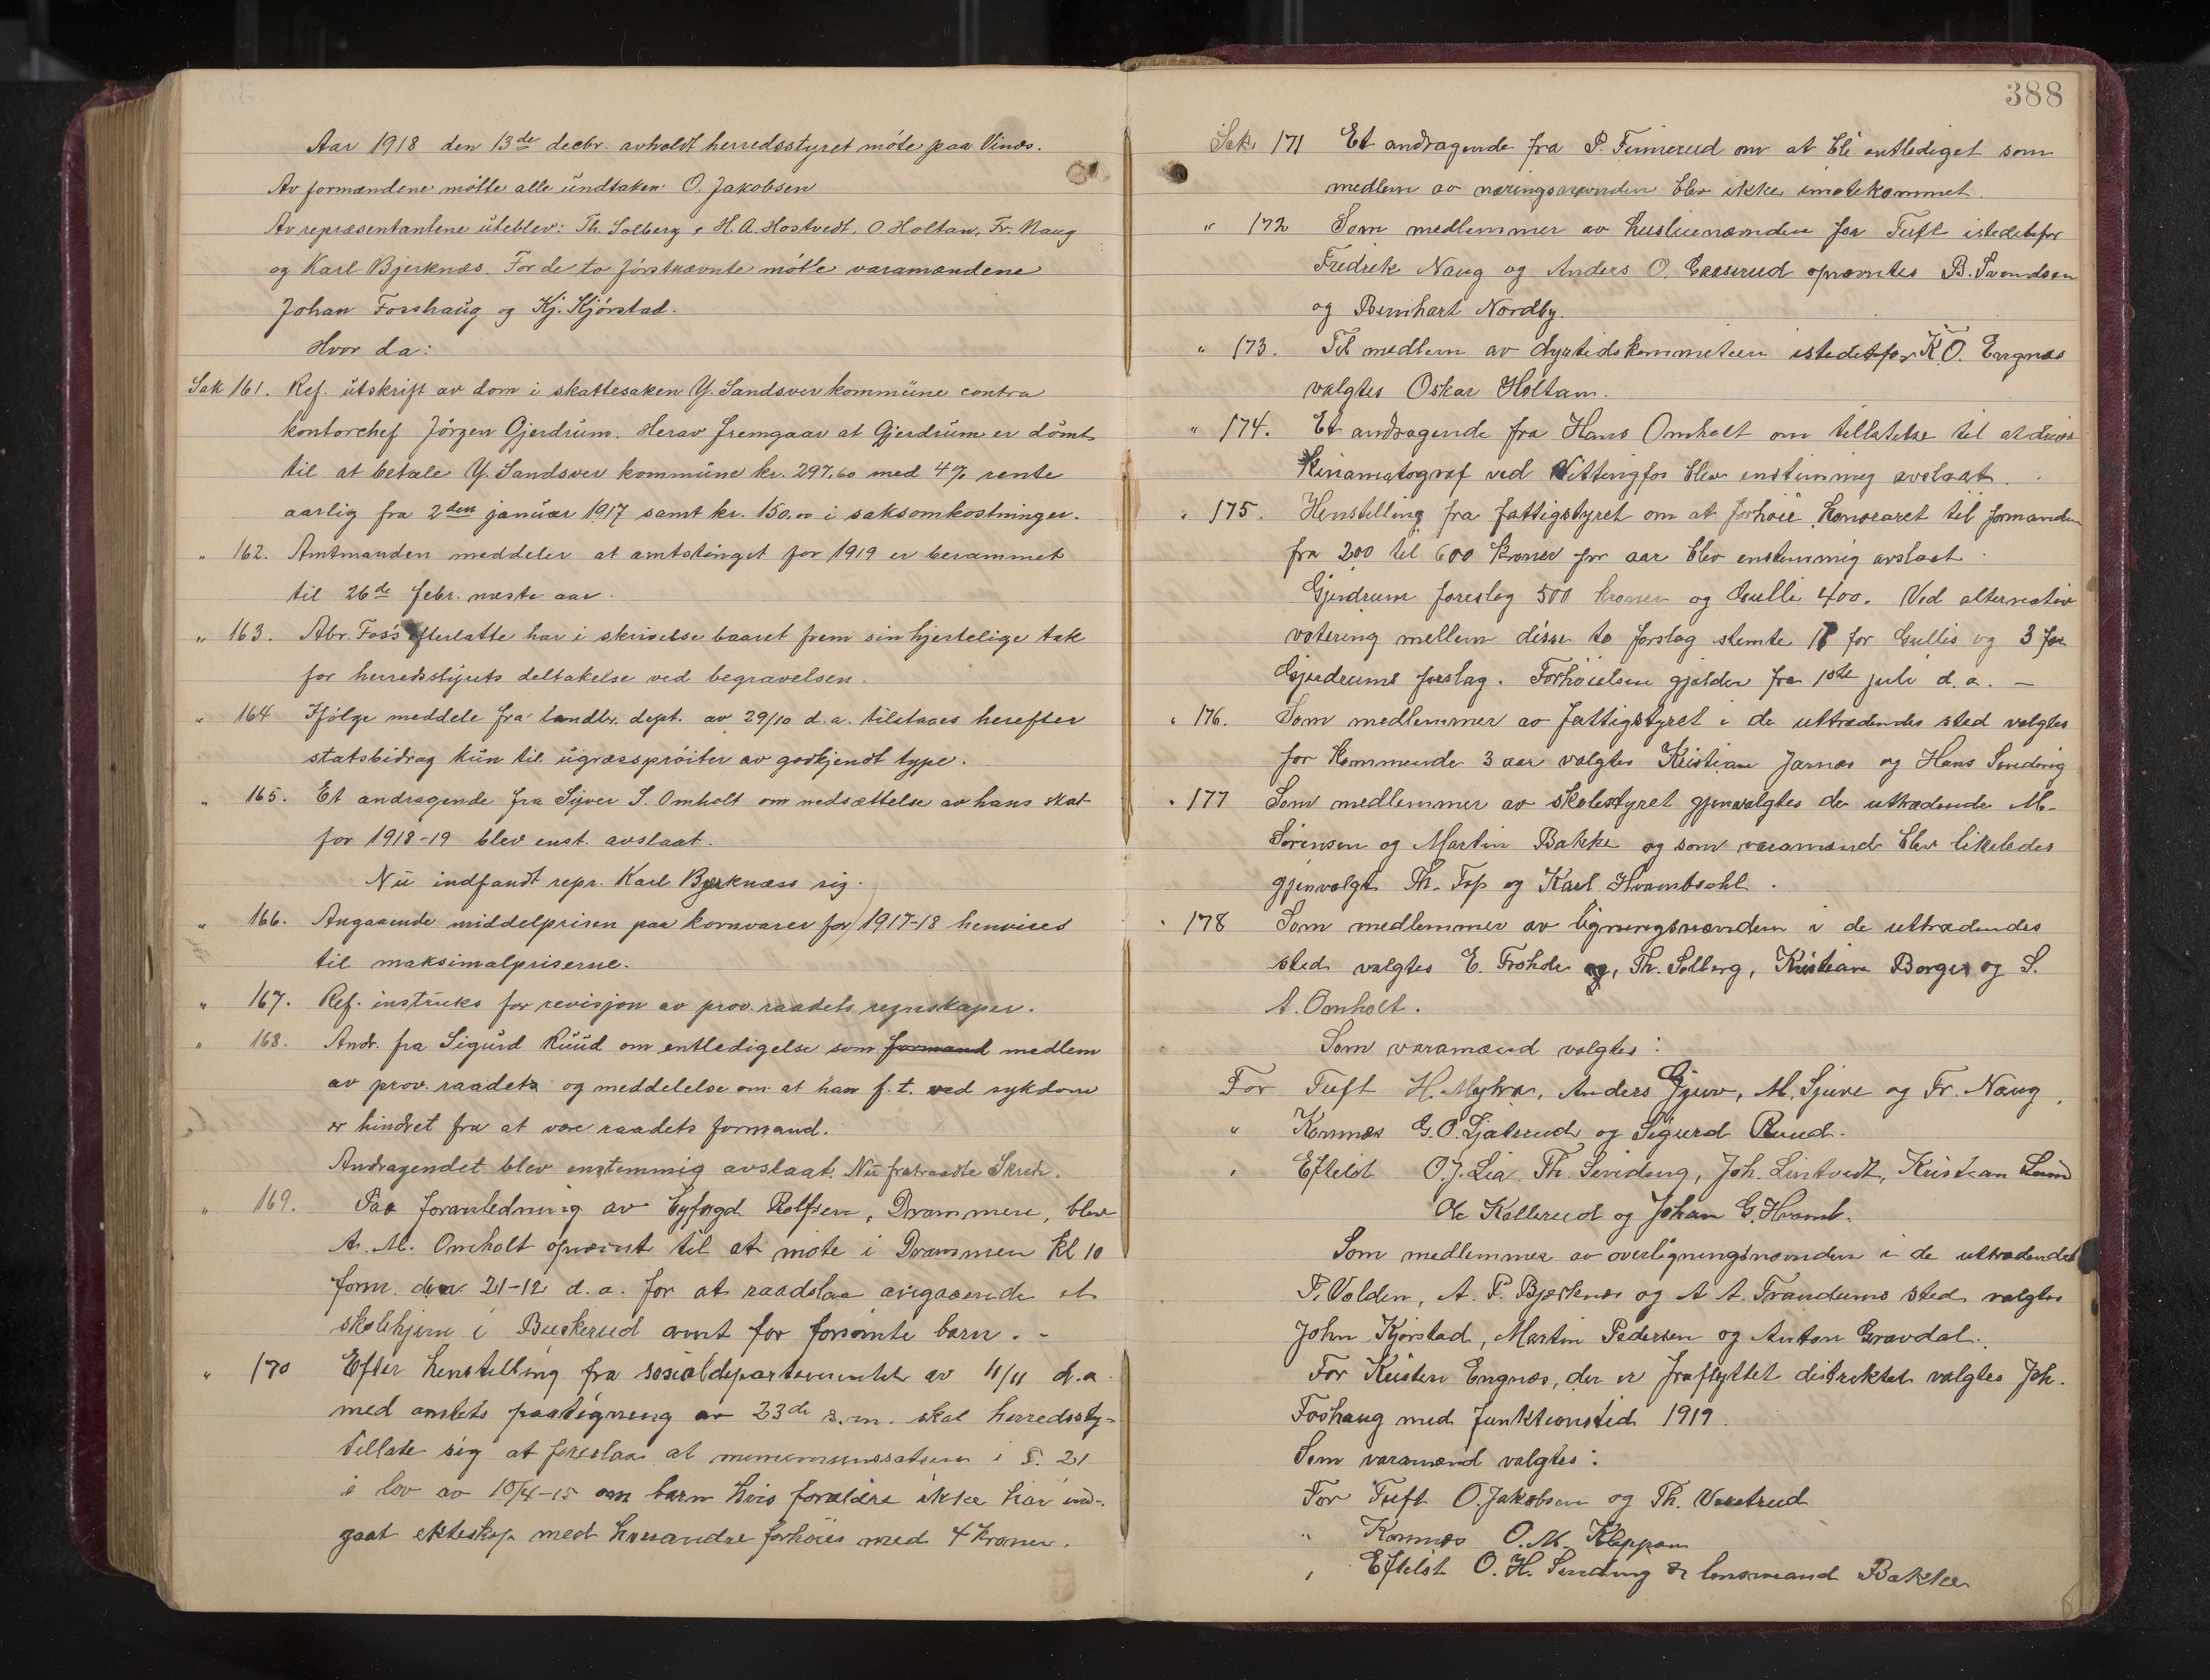 Aar 1918 den 13de decbr. avholdt herredsstyret møte paa Vinæs.
Av formændene møtte alle undtaken O. Jakobsen
Av repræsentantene uteblev: Th. Solberg, H. A. Hostvedt, O Holtan, Fr. Naug
og Karl Bjerknæs. For de to førstnævnte møtte varamændene
Johan Forshaug og Kj. Kjørstad.
Hvor da:
Sak 161. Ref. utskrift av dom i skattesaken Y. Sandsver kommune contra
kontorchef Jörgen Gjerdrum. Herav fremgaar at Gjerdrum er dømt
til at betale Y. Sandsver kommune kr. 297.60 med 4% rente
aarlig fra 2den januar 1917 samt kr. 150.00 i saksomkostninger.
" 162. Amtmanden meddeler at amtstinget for 1919 er berammet
til 26de febr. næste aar.
" 163. Abr. Foss's efterlatte har i skrivelse baaret frem sin hjertelige tak
for herredsstyrets deltakelse ved begravelsen.
" 164 Ifølge meddele fra landbr. dept. av 29/10 d.a. tilstaaes herefter
statsbidrag kun til ugræssprøiter av godkjendt type.
" 165. Et andragende fra Syver S. Omholt om nedsættelse av hans skat
for 1918-19 blev enst. avslaat.
Nu indfandt repr. Karl Bjerknæss sig.
" 166. Angaaende middelprisen paa kornvarer for 1917-18 henvises
til maksimalpriserne.
" 167. Ref. instruks for revisjon av prov. raadets regnskaper.
" 168. Andr. fra Sigurd Ruud om entledigelse som formand medlem
av prov. raadets og meddelelse om at han f. t. ved sykdom
er hindret fra at være raadets formand.
Andragendet blev enstemmig avslaat. Nu fratraadte Skred.
" 169. Paa foranledning av byfogd Rolfsen, Drammen, blev
A. M. Omholt opnævnt til at møte i Drammen kl 10
form. den 21-12 d. a. for at raadslaa angaaende et
skolehjem i Buskerud amt for forsømte barn. -
" 170 Efter henstilling fra sosialdepartementet av 11/11 d.a.
med amtets paategning av 23de s.m. skal herredssty-
tillate sig at foreslaa at minimumssatsene i §. 21
i lov av 10/4-15 om barn hvis forældre ikke har ind-
gaat ekteskap med hverandre forhøies med 4 kroner.
388
Sak 171 Et andragende fra P. Finnerud om at bli entlediget som
medlem av næringsnævnden blev ikke imøtekommet.
" 172 Som medlemmer av husleienævnden for Tuft istedetfor
Fredrik Naug og Anders O. opnævntes B. Svendsen
og Bernhart Nordby.
" 173. Til medlem av dyrtidskommiteen istedetfor K. O. Engnæs
valgtes Oskar Holtan.
" 174. Et andragende fra Hans Omholt om tillatelse til at drive
Kinematograf ved Vittingfos blev enstemmig avslaat.
" 175. Henstilling fra fattigstyret om at forhøie honoraret til formanden
fra 200 til 600 kroner pr aar blev enstemmig avslaat.
Gjerdrum foreslog 500 kroner og Gulli 400. Ved alternativ
votering mellem disse to forslag stemte for Gullis og 3 for
Gjerdrums forslag. Forhøielsen gjælder fra 1ste juli d. a. —
" 176. Som medlemmer av fattigstyret i de uttrædendes sted valgtes
for kommende 3 aar valgtes Kristian Jarnæs og Hans Sending
" 177 Som medlemmer av skolestyret gjenvalgtes de uttrædende M.
Sørensen og Martin Bakke og som varamænd blev likeledes
gjenvalgt Th. Foss og Karl Hvambsahl.
" 178 Som medlemmer av ligningsnævnden i de uttrædendes
sted valgtes E. Frohde og, Th. Solberg, Kristian Borger og S.
A. Omholt.
Som varamænd valgtes:
For Tuft H. Myhra, Anders Gjuv, M. Sjuve og Fr. Naug,
" Komnæs G. O. og Sigurd Ruud.
" Efteløt O. J. Lia. Th. Sending, Joh. Lintvedt, Kristian Lund
Ole Kollerud og Johan G. Hvamb.
Som medlemmer av overligningsnævnden i de uttrædendes
P. Volden, A. P. Bjerknæs og A. A. Trandums sted valgtes
John Kjørstad, Martin Pedersen og Anton Gravdal.
For Kristen Engnæs, der er fraflyttet distriktet valgtes Joh.
Foshaug med funktionstid 1919.
Som varamænd valgtes:
For Tuft O. Jakobsen og Th.
" Komnæs O. M. Kleppan
" Efteløt O. H. Sending & lensmand Bakke